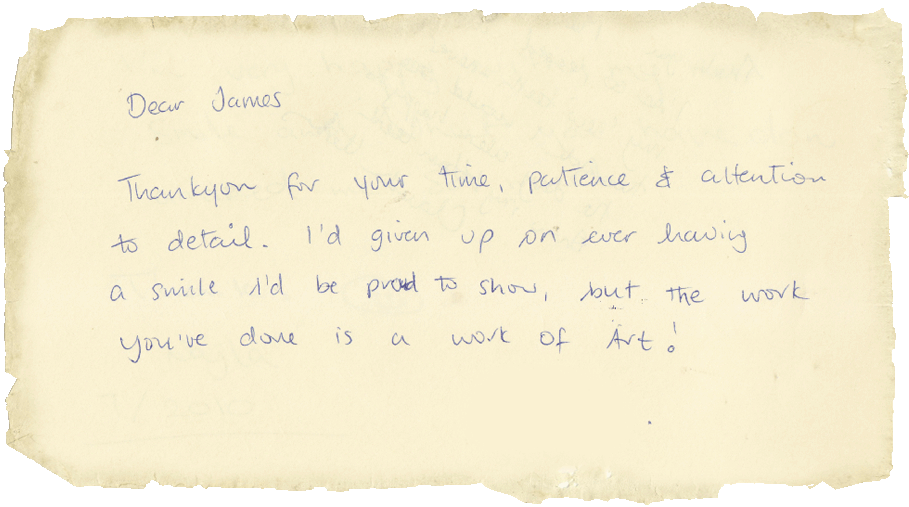 Dear James
Thankyou for your time, patience & attention
to detail. I'd given up on ever having
a smile I'd be proud to show, but the work
you've done is a work of Art!